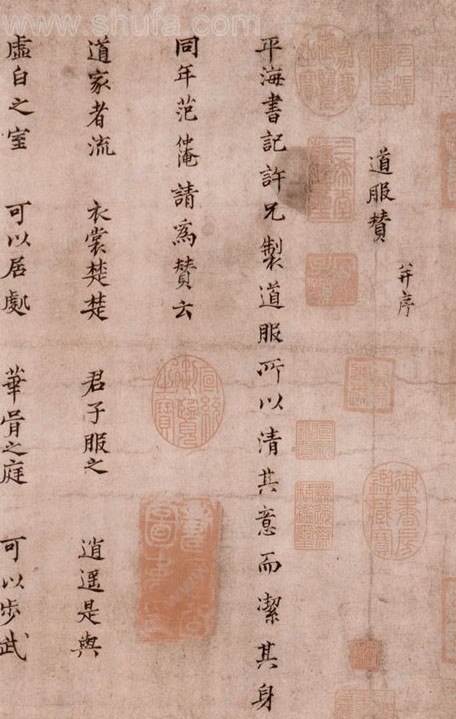 www.shufa.com
道服賛 并序
平海書記許兄製道服所以清其意而潔其身
同年范仲淹請爲賛云
道家者流 衣裳楚楚 君子服之 逍遥是與
虛白之室 可以居處 華胥之庭 可以步武
御書房鑑藏寶
宣統御覽之寶